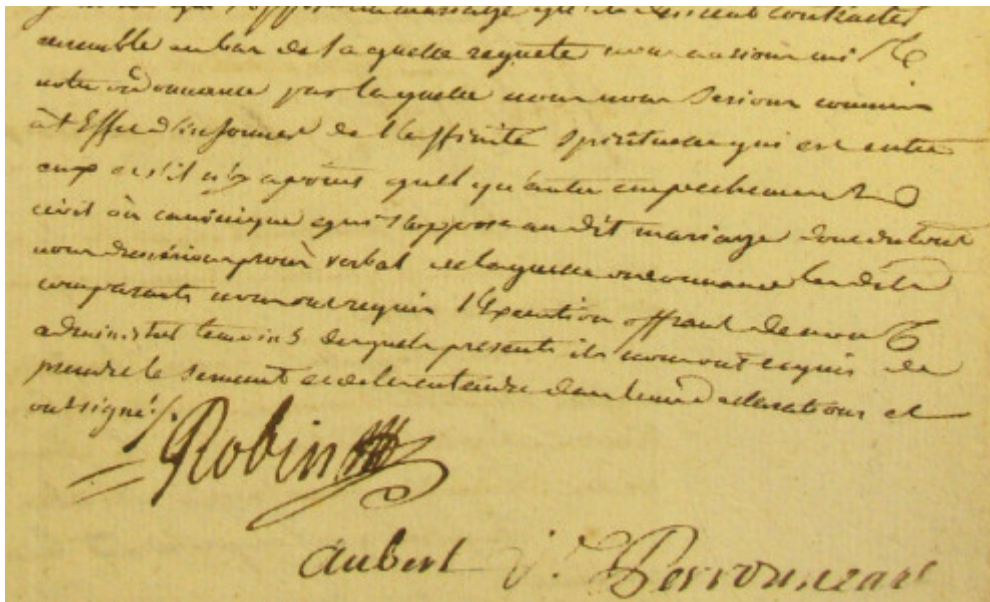 qui s'oppose au mariage qu'ils desirent contracter
ensemble au bas de laquelle requete nous aurions mis
notre ordonnance par laquelle nous nous serions commis
à l'Effet d'informer de l'affinité spirituelle qui est entre
eux et s'il n'y a point quelqu'autre empechement
civil ou canonique qui s'oppose au dit mariage donc du tout
nous dresserions procès verbal de laquelle ordonnance les dits
comparants nous ont requis l'Execution offrant de nous
administrer temoins desquels presents ils nous ont requis de
prendre le serment et de les entendre dans leurs declarations et
ont signé /.
Robin
Aubert J. Perronneau